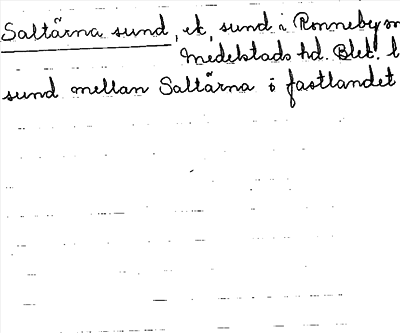 Saltärna sund, et, sund i Ronneby sn
Medelstads hd. Blek. l
sund mellan Saltärna o fastlandet